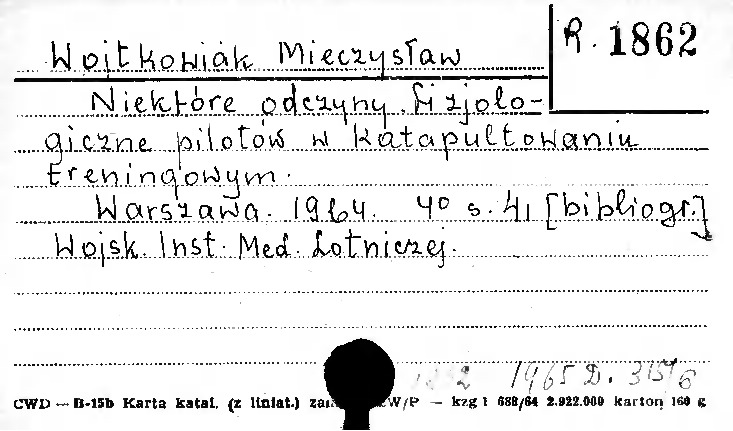 Wojtkowiak Mieczysław
R. 1862
Niektóre odczyny fizjolo-
giczne pilotów w katapultowaniu
treningowym.
Warszawa. 1964. 4° s. 41 [bibliogr.]
Wojsk. Inst. Med. Lotniczej.
1965 D. 315/6
CWD — B-15b Karta katal. (z liniat.) W/P — kzg t 688/64 2.922.000 karton 160 g